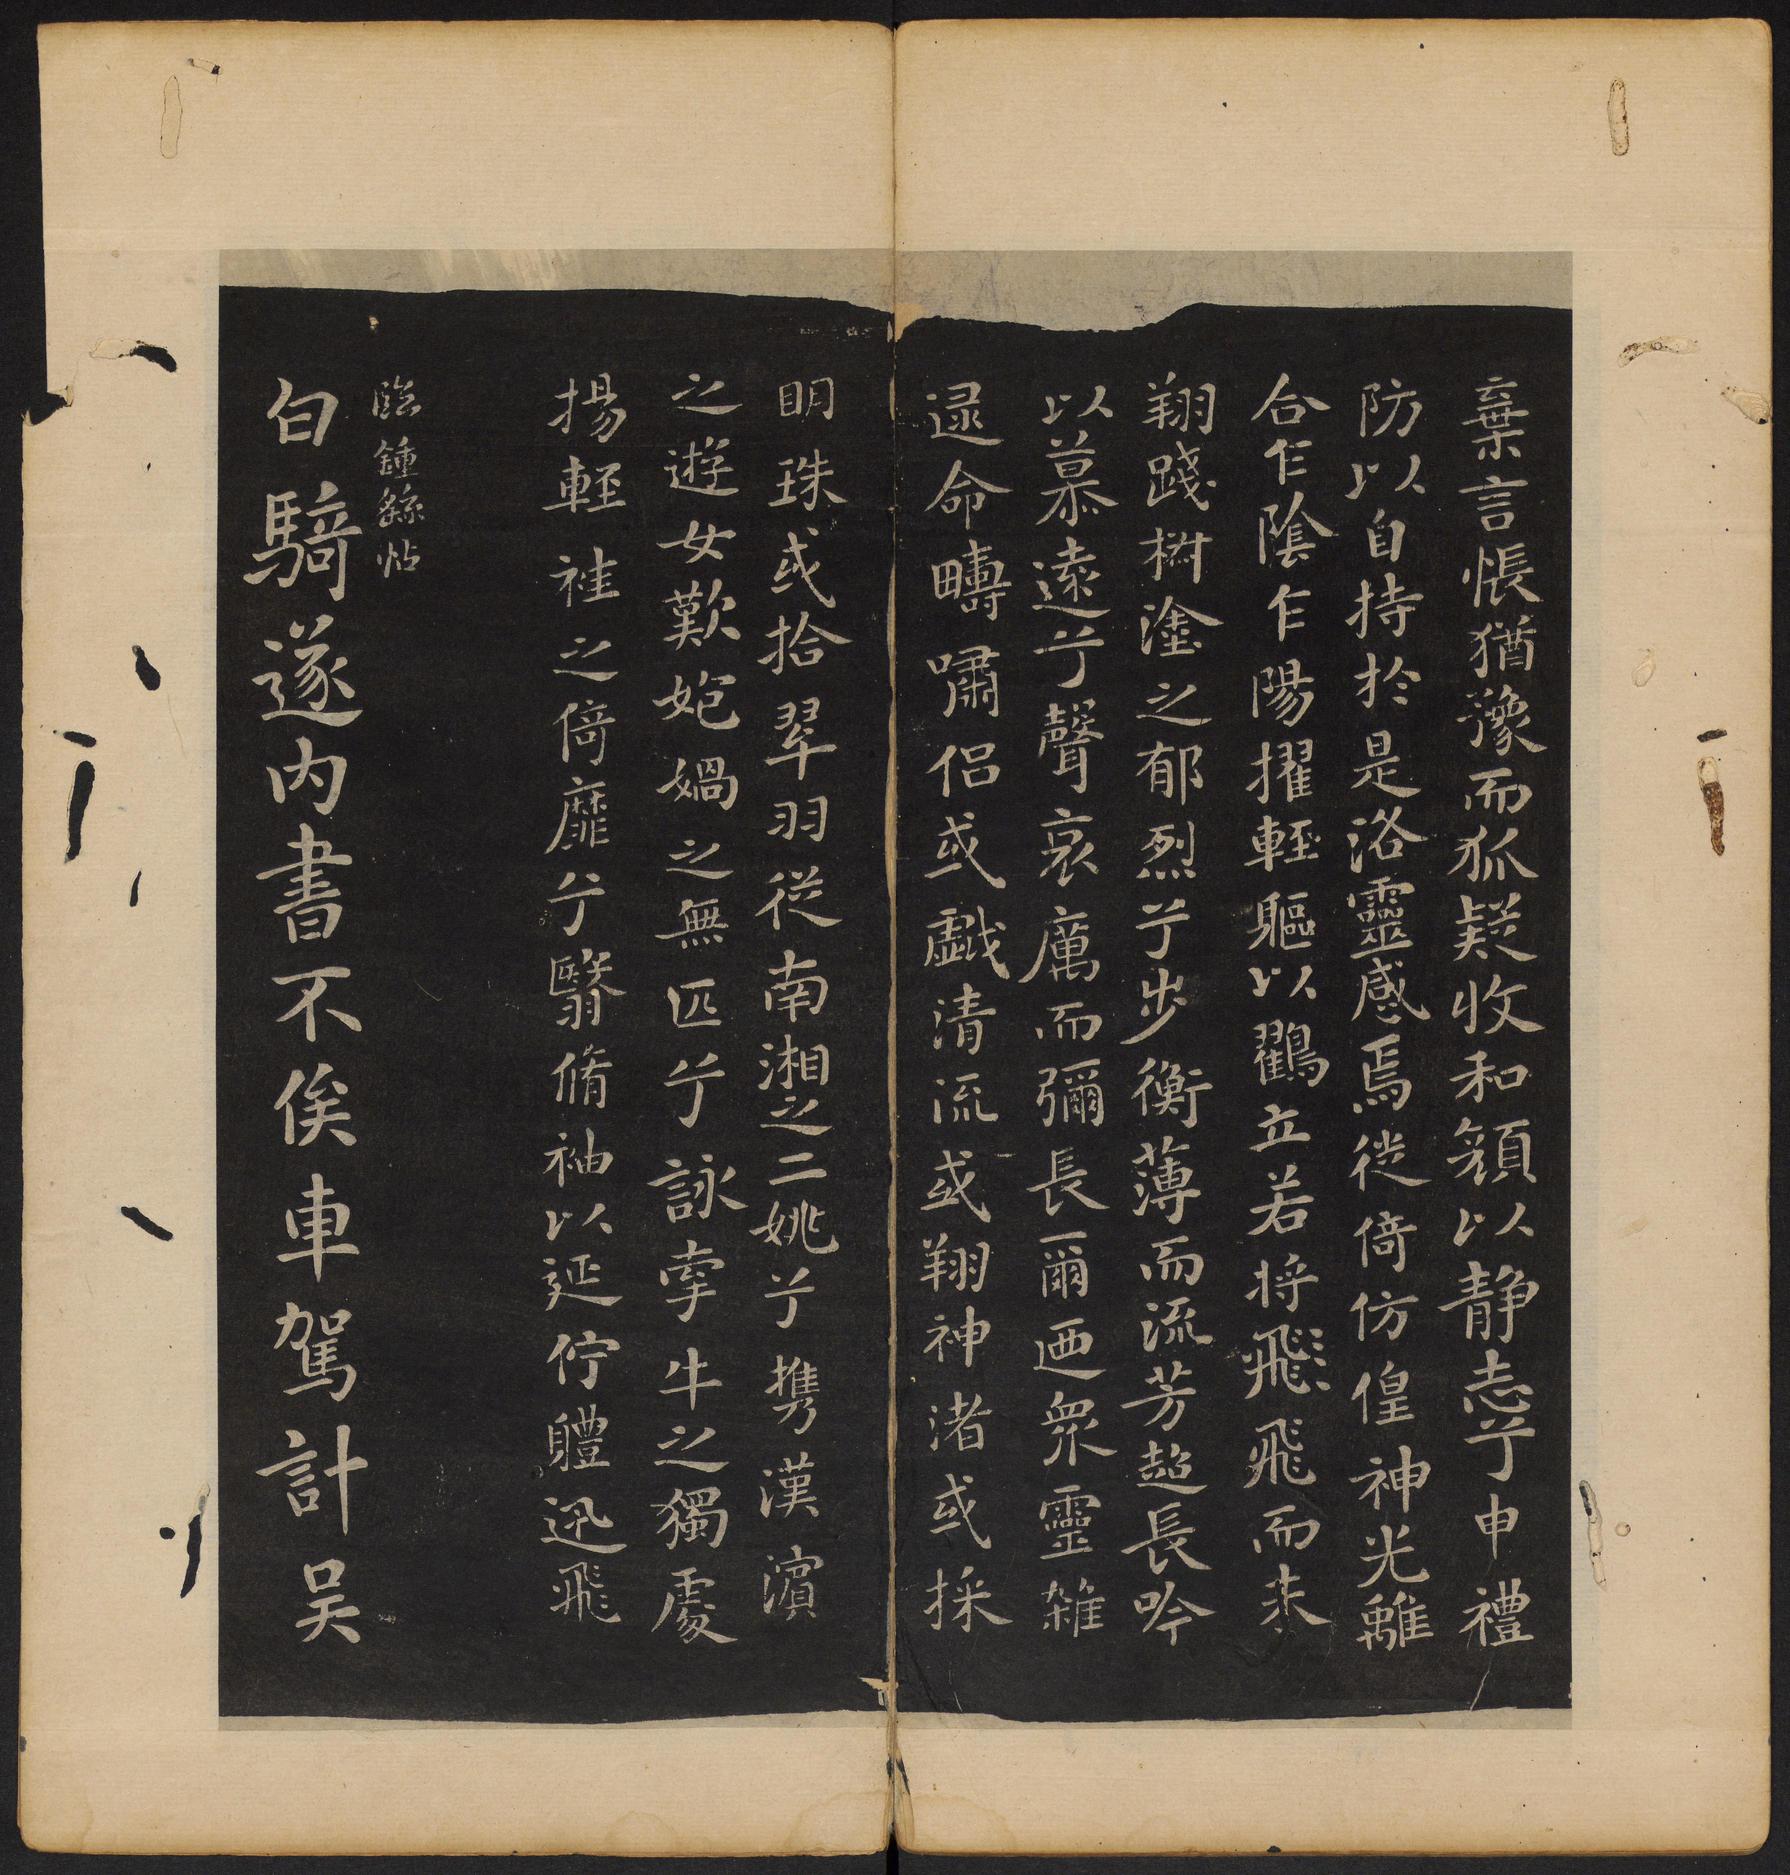 棄言悵猶豫而狐疑收和顏以静志兮申禮
防以自持於是洛靈感焉徙倚仿偟神光離
合乍陰乍陽擢輕軀以鸛立若将飛飛而未
翔踐椒塗之郁烈兮步衡薄而流芳超長吟
以慕遠兮聲哀厲而彌長爾迺衆靈雜
逯命疇嘯侣或戲清流或翔神渚或採
明珠或拾翠羽從南湘之二姚兮携漢濱
之遊女歎匏媧之無匹兮詠牽牛之獨處
揚輕袿之倚靡兮翳脩袖以延佇軆迅飛
臨鍾繇帖
白騎遂内書不俟車駕計吴